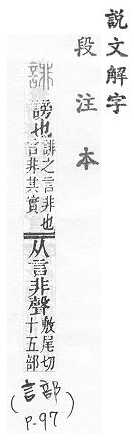 說文解字
段注本
誹
謗也
誹之言非也
言非其實
从言非聲
敷尾切
十五部
(言部)
P.97